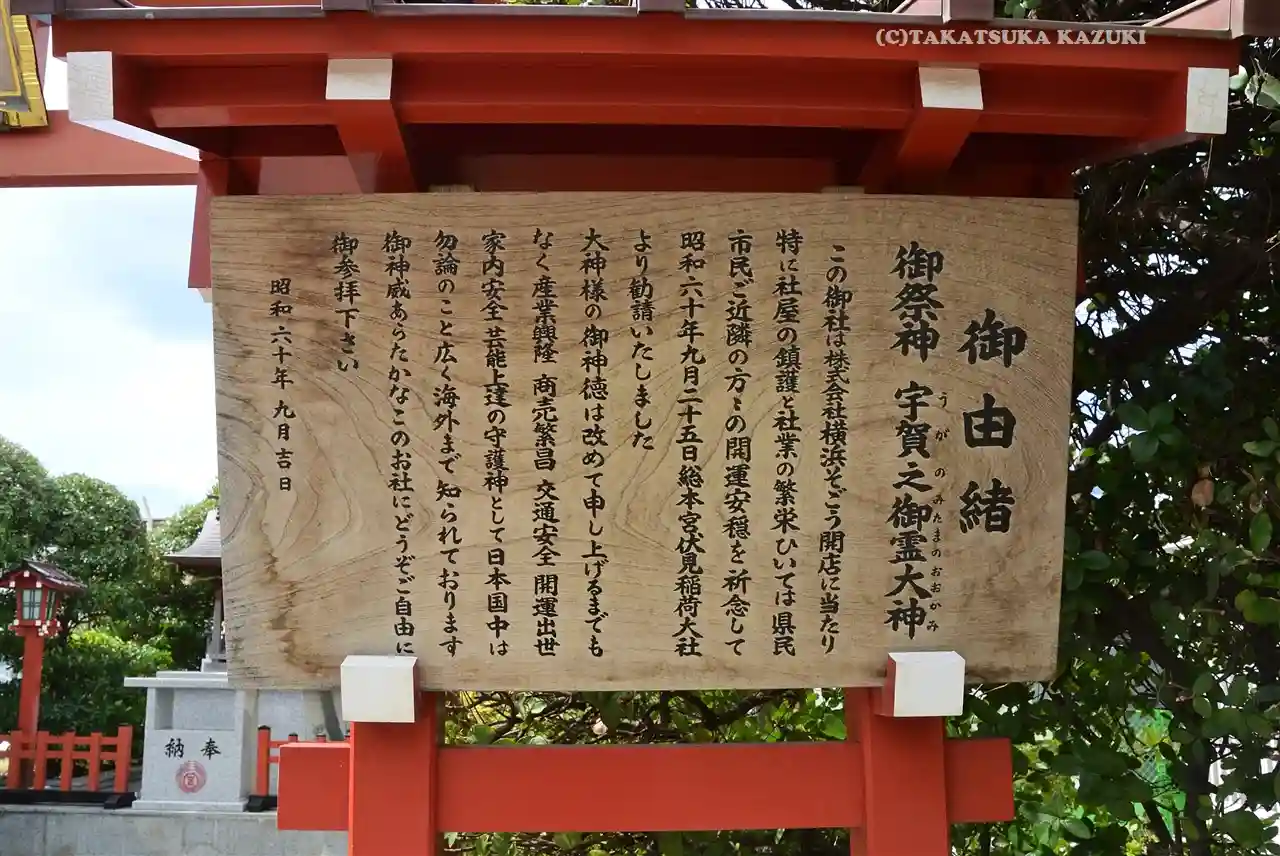 (C)TAKATSUKA KAZUKI
御由緒
御祭神 宇賀之御霊大神
うがのみたまのおおかみ
この御社は株式会社横浜そごう開店に当たり
特に社屋の鎮護と社業の繁栄ひいては県民
市民ご近隣の方々の開運安穏を祈念して
昭和六十年九月二十五日総本宮伏見稲荷大社
より勧請いたしました
大神様の御神徳は改めて申し上げるまでも
なく産業興隆 商売繁昌 交通安全 開運出世
家内安全 芸能上達の守護神として日本国中は
勿論のこと広く海外まで知られております
御神威あらたかなこのお社にどうぞご自由に
御参拝下さい
昭和六十年九月吉日
奉納